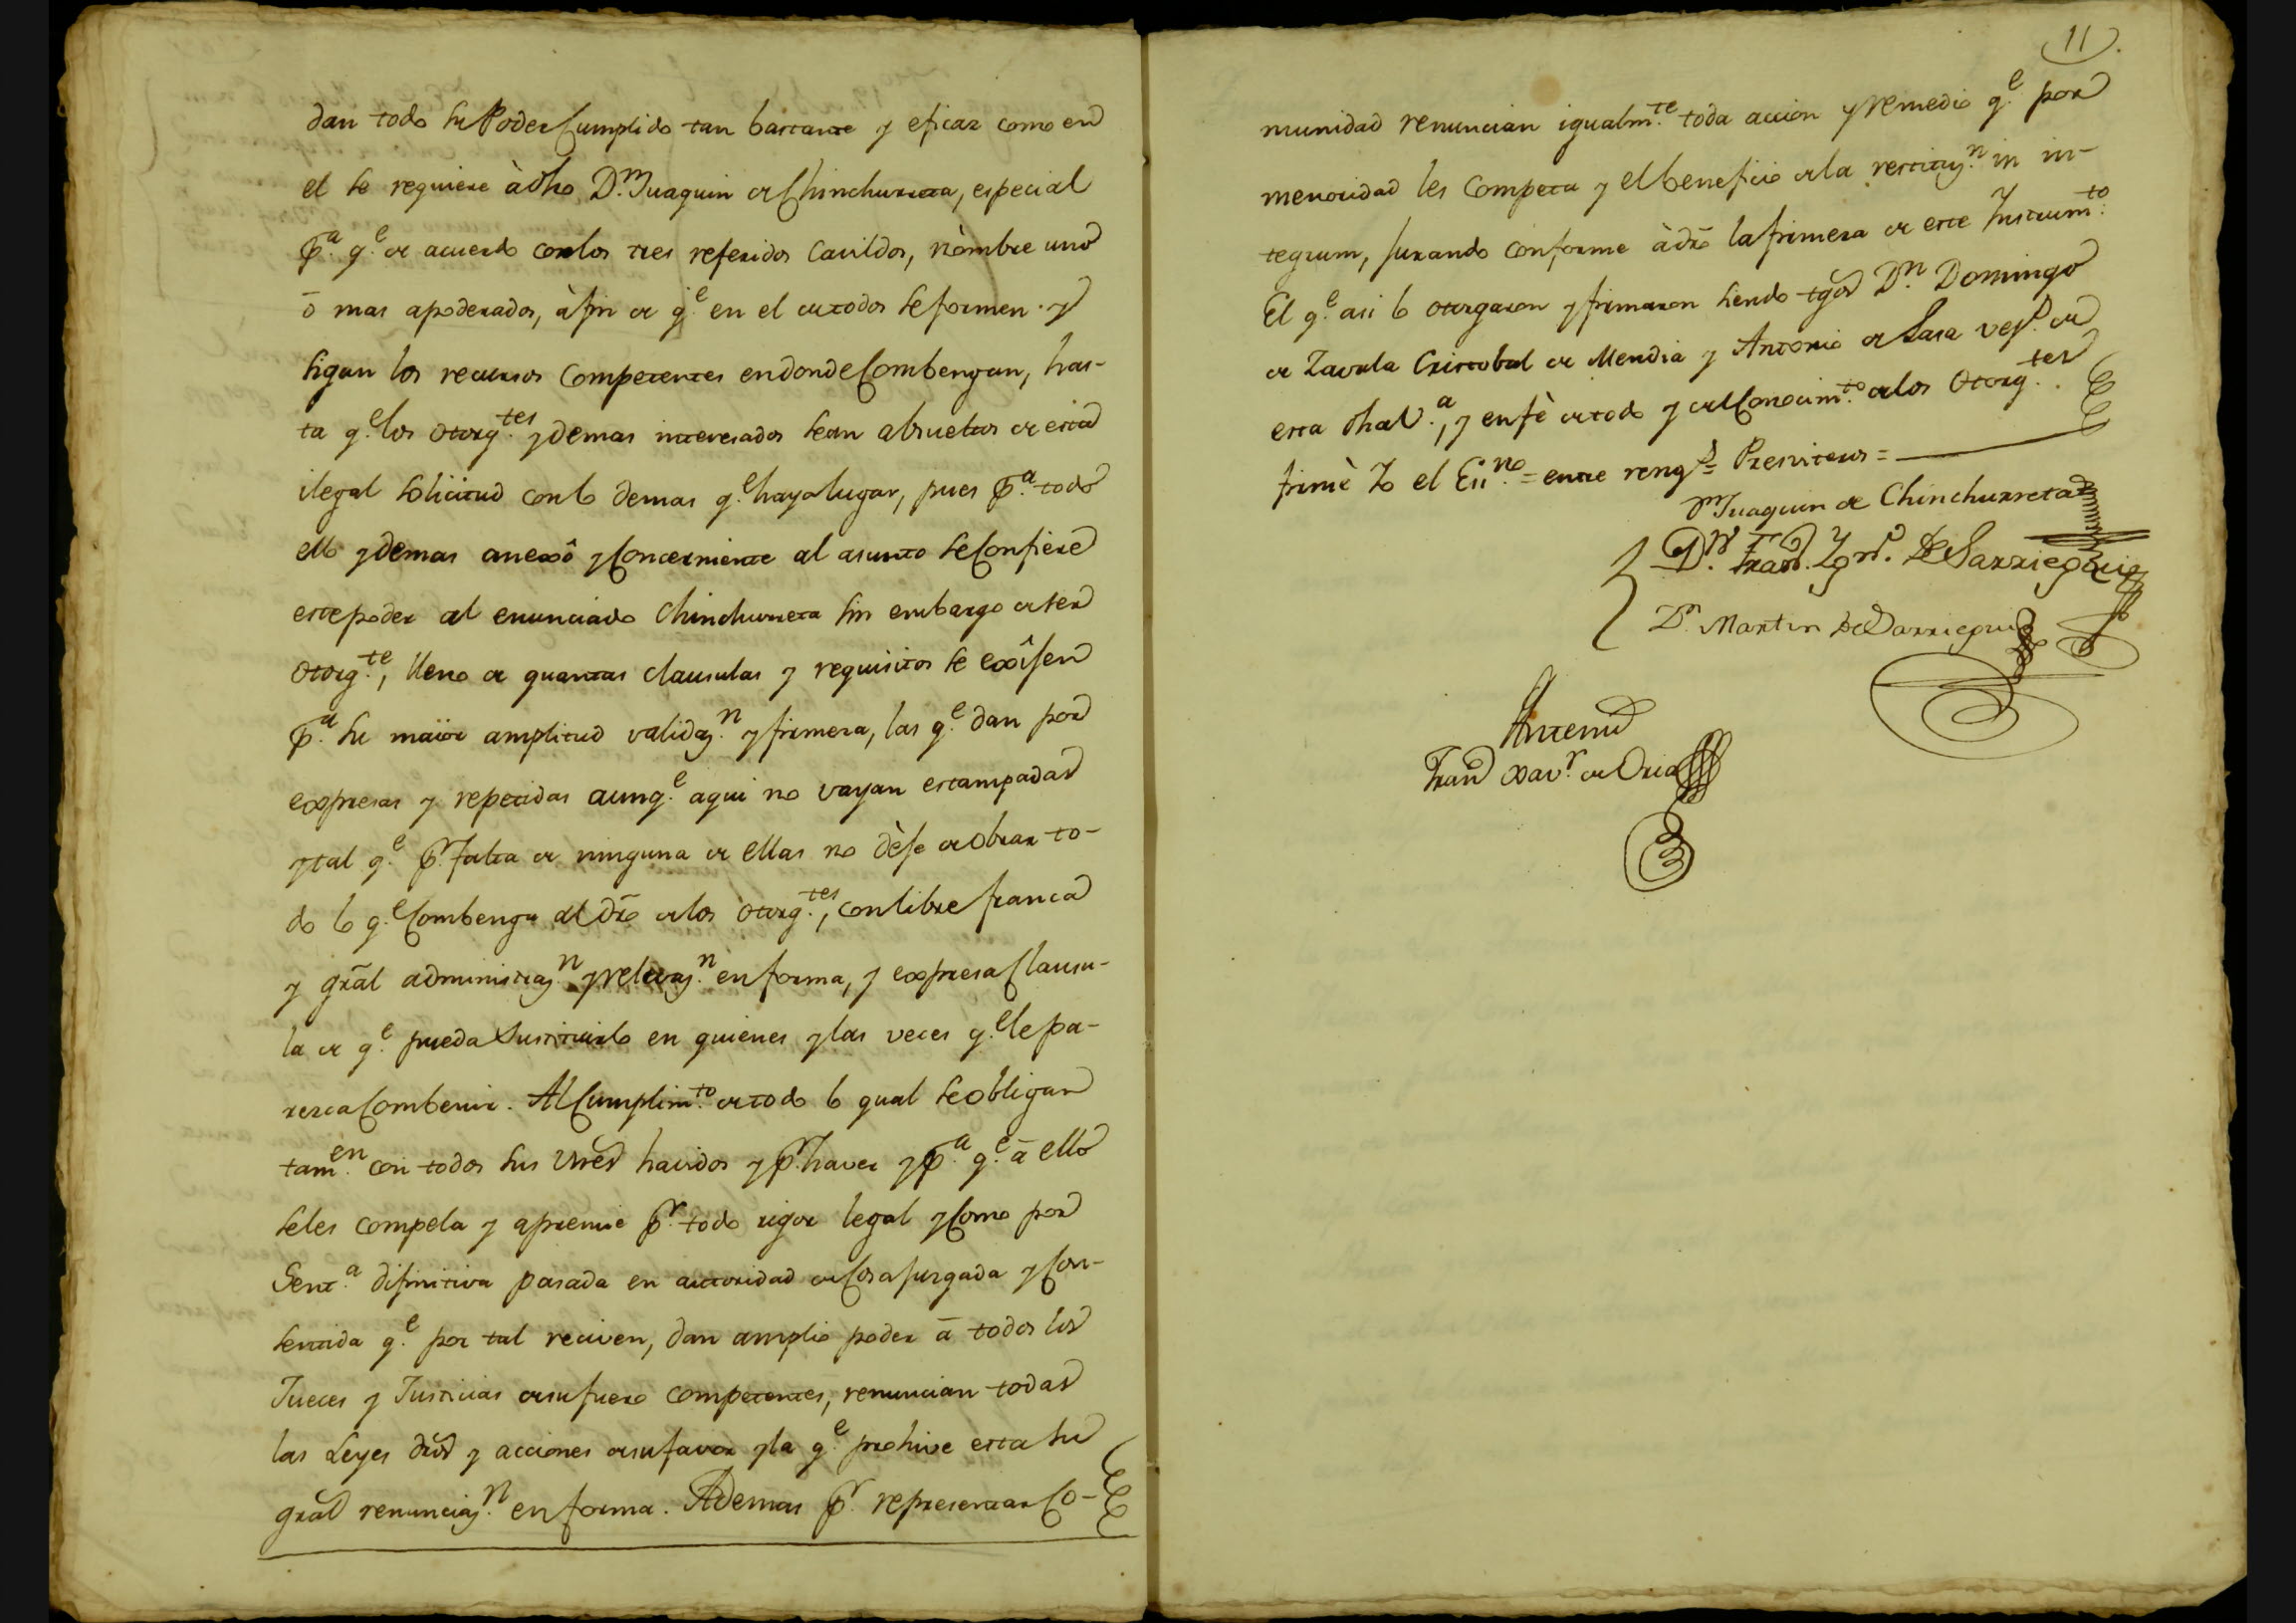 dan todo su Poder Cumplido tan bastante y eficaz como en
el se requiere à dho Dn. Juaquin de Chinchurreta, especial
pa. qe. de acuerdo con los tres referidos Cavildos, nombre uno
ō mas apoderados, à fin de qe. en el de todos se formen y
sigan los recursos Competentes en donde Combengan, has-
ta qe. los otorgtes. y demas interesados sean absueltos de esta
ilegal solicitud con lo demas qe. haya lugar, pues pa. todo
ello y demas anexô y Concerniente al asunto se Confiere
este poder al enunciado Chinchurreta sin embargo de ser
otorgte., lleno de quantas clausulas y requisitos se exîjen
pa. su maior amplitud validazn. y firmeza, las qe. dan por
expresas y repetidas aunqe. aqui no vayan estampadas
y tal qe. pr. falta de ninguna de ellas no dèje de obrar to-
do lo qe. Combenga al dro de los otorgtes., con libre franca
y gral administrazn. y relevazn. en forma, y expresa Clausu-
la de qe. pueda sustituirlo en quienes y las veces qe. le pa-
rezca Combenir. Al Cumplimto. de todo lo qual se obligan
tamen. con todos sus Vnes havidos y pr. haver y pa. qe. ā ello
se les compela y apremie pr. todo rigor legal y Como por
Senta. difinitiva pasada en autoridad de Cosa juzgada y Con-
sentida qe. por tal reciven, dan amplio poder ā todos los
Jueces y Justicias de su fuero competentes, renuncian todas
las Leyes dros y acciones de su favor y la qe. prohive esta su
gral renunciazn. en forma. Ademas pr. representar Co-
11.
munidad renuncian igualmte. toda accion y remedio qe. por
menoridad les Competa y el beneficio de la restituzn. in in-
tegrum, jurando conforme à dro la firmeza de este Instrumto.
El qe. asi lo otorgaron y firmaron siendo tgos Dn. Domingo
de Zavala Cristobal de Mendia y Antonio de Lasa vezs. de
esta dha Va., y en fè de todo y del Conocimto. de los Otorgtes.
firmè Yo el Essno. = entre rengs. = Presviteros =
Dn Juaquin de Chinchurreta
Dn. Franco. Ygno. De Sarriegui
Dn. Martin De Sarriegui
Antemi
Franco Xavr. de Oria